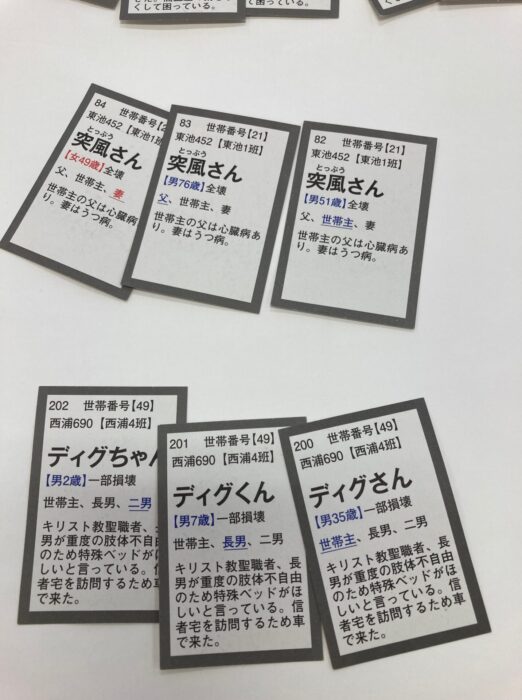 くして困っている。
て困っている。
84 世帯番号【2
東池452【東池1班
とっぷう
突風さん
【女49歳】全壊
父、世帯主、妻
世帯主の父は心臓病あ
り。妻はうつ病。
83 世帯番号【21】
東池452【東池1班】
とっぷう
突風さん
【男76歳】全壊
父、世帯主、妻
世帯主の父は心臓病あ
り。妻はうつ病。
82 世帯番号【21】
東池452【東池1班】
とっぷう
突風さん
【男51歳】全壊
父、世帯主、妻
世帯主の父は心臓病あ
り。妻はうつ病。
202 世帯番号【49】
西浦690【西浦4班】
ディグちゃん
【男2歳】一部損壊
世帯主、長男、二男
キリスト教聖職者、
男が重度の肢体不自由
のため特殊ベッドが
しいと言っている。信
者宅を訪問するため車
で来た。
201 世帯番号【49】
西浦690【西浦4班】
ディグくん
【男7歳】一部損壊
世帯主、長男、二男
キリスト教聖職者、長
男が重度の肢体不自由
のため特殊ベッドがほ
しいと言っている。信
者宅を訪問するため車
で来た。
200 世帯番号【49】
西浦690【西浦4班】
ディグさん
【男35歳】一部損壊
世帯主、長男、二男
キリスト教聖職者、長
男が重度の肢体不自由
のため特殊ベッドがほ
しいと言っている。信
者宅を訪問するため車
で来た。